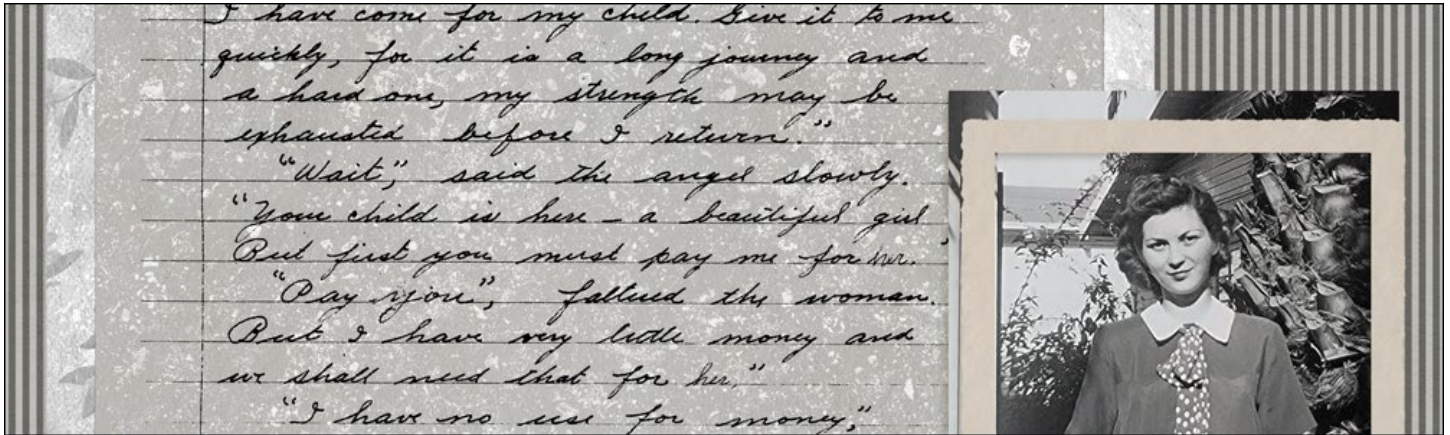 I have come for my child. Give it to me
quickly, for it is a long journey and
a hard one, my strength may be
exhausted before I return."
"Wait", said the angel slowly.
"Your child is here – a beautiful girl,
But first you must pay me for her.
"Pay you", faltered the woman.
But I have very little money and
we shall need that for her."
"I have no use for money,"